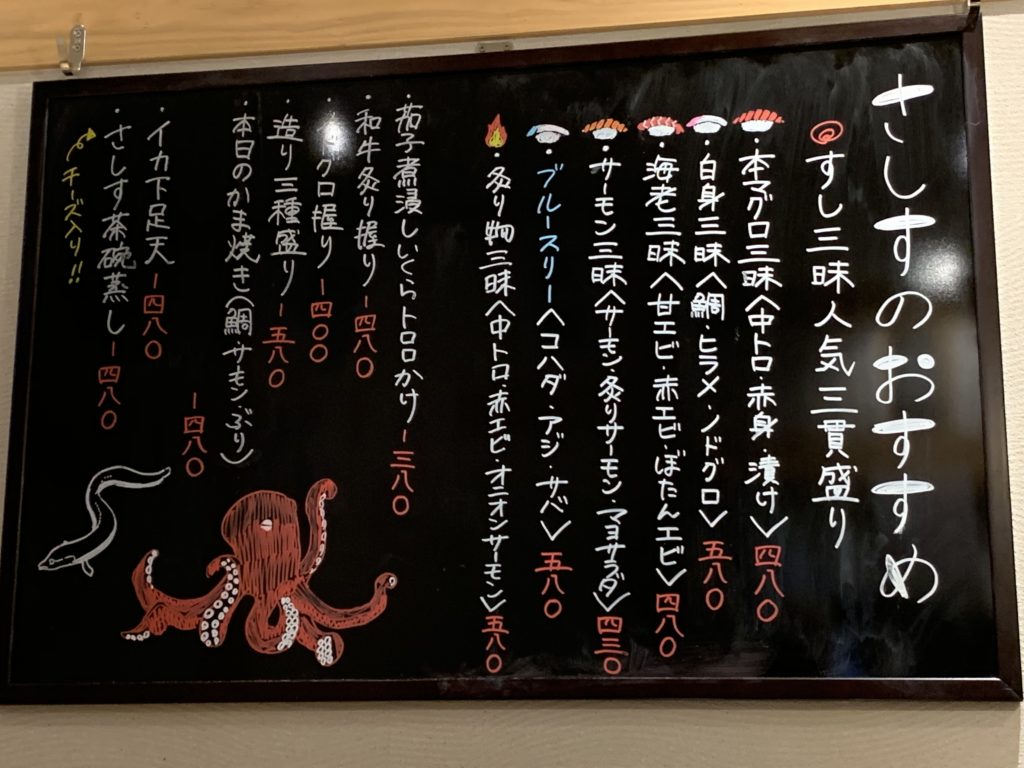 さしすのおすすめ
すし三昧人気三貫盛り
・本マグロ三昧〈中トロ・赤身・漬け〉四八〇
・白身三昧〈鯛・ヒラメ・ノドグロ〉五八〇
・海老三昧〈甘エビ・赤エビ・ぼたんエビ〉四八〇
・サーモン三昧〈サーモン・炙りサーモン・マヨサラダ〉四三〇
・ブルースリー〈コハダ・アジ・サバ〉五八〇
・炙り物三昧〈中トロ・赤エビ・オニオンサーモン〉五八〇
・茄子煮浸しいくらトロロかけ ー三八〇
・和牛炙り握り ー四八〇
クロ握り ー四〇〇
・造り三種盛り ー五八〇
・本日のかま焼き(鯛・サーモン・ぶり)
ー四八〇
・イカ下足天 ー四八〇
・さしす茶碗蒸し ー四八〇
チーズ入り!!